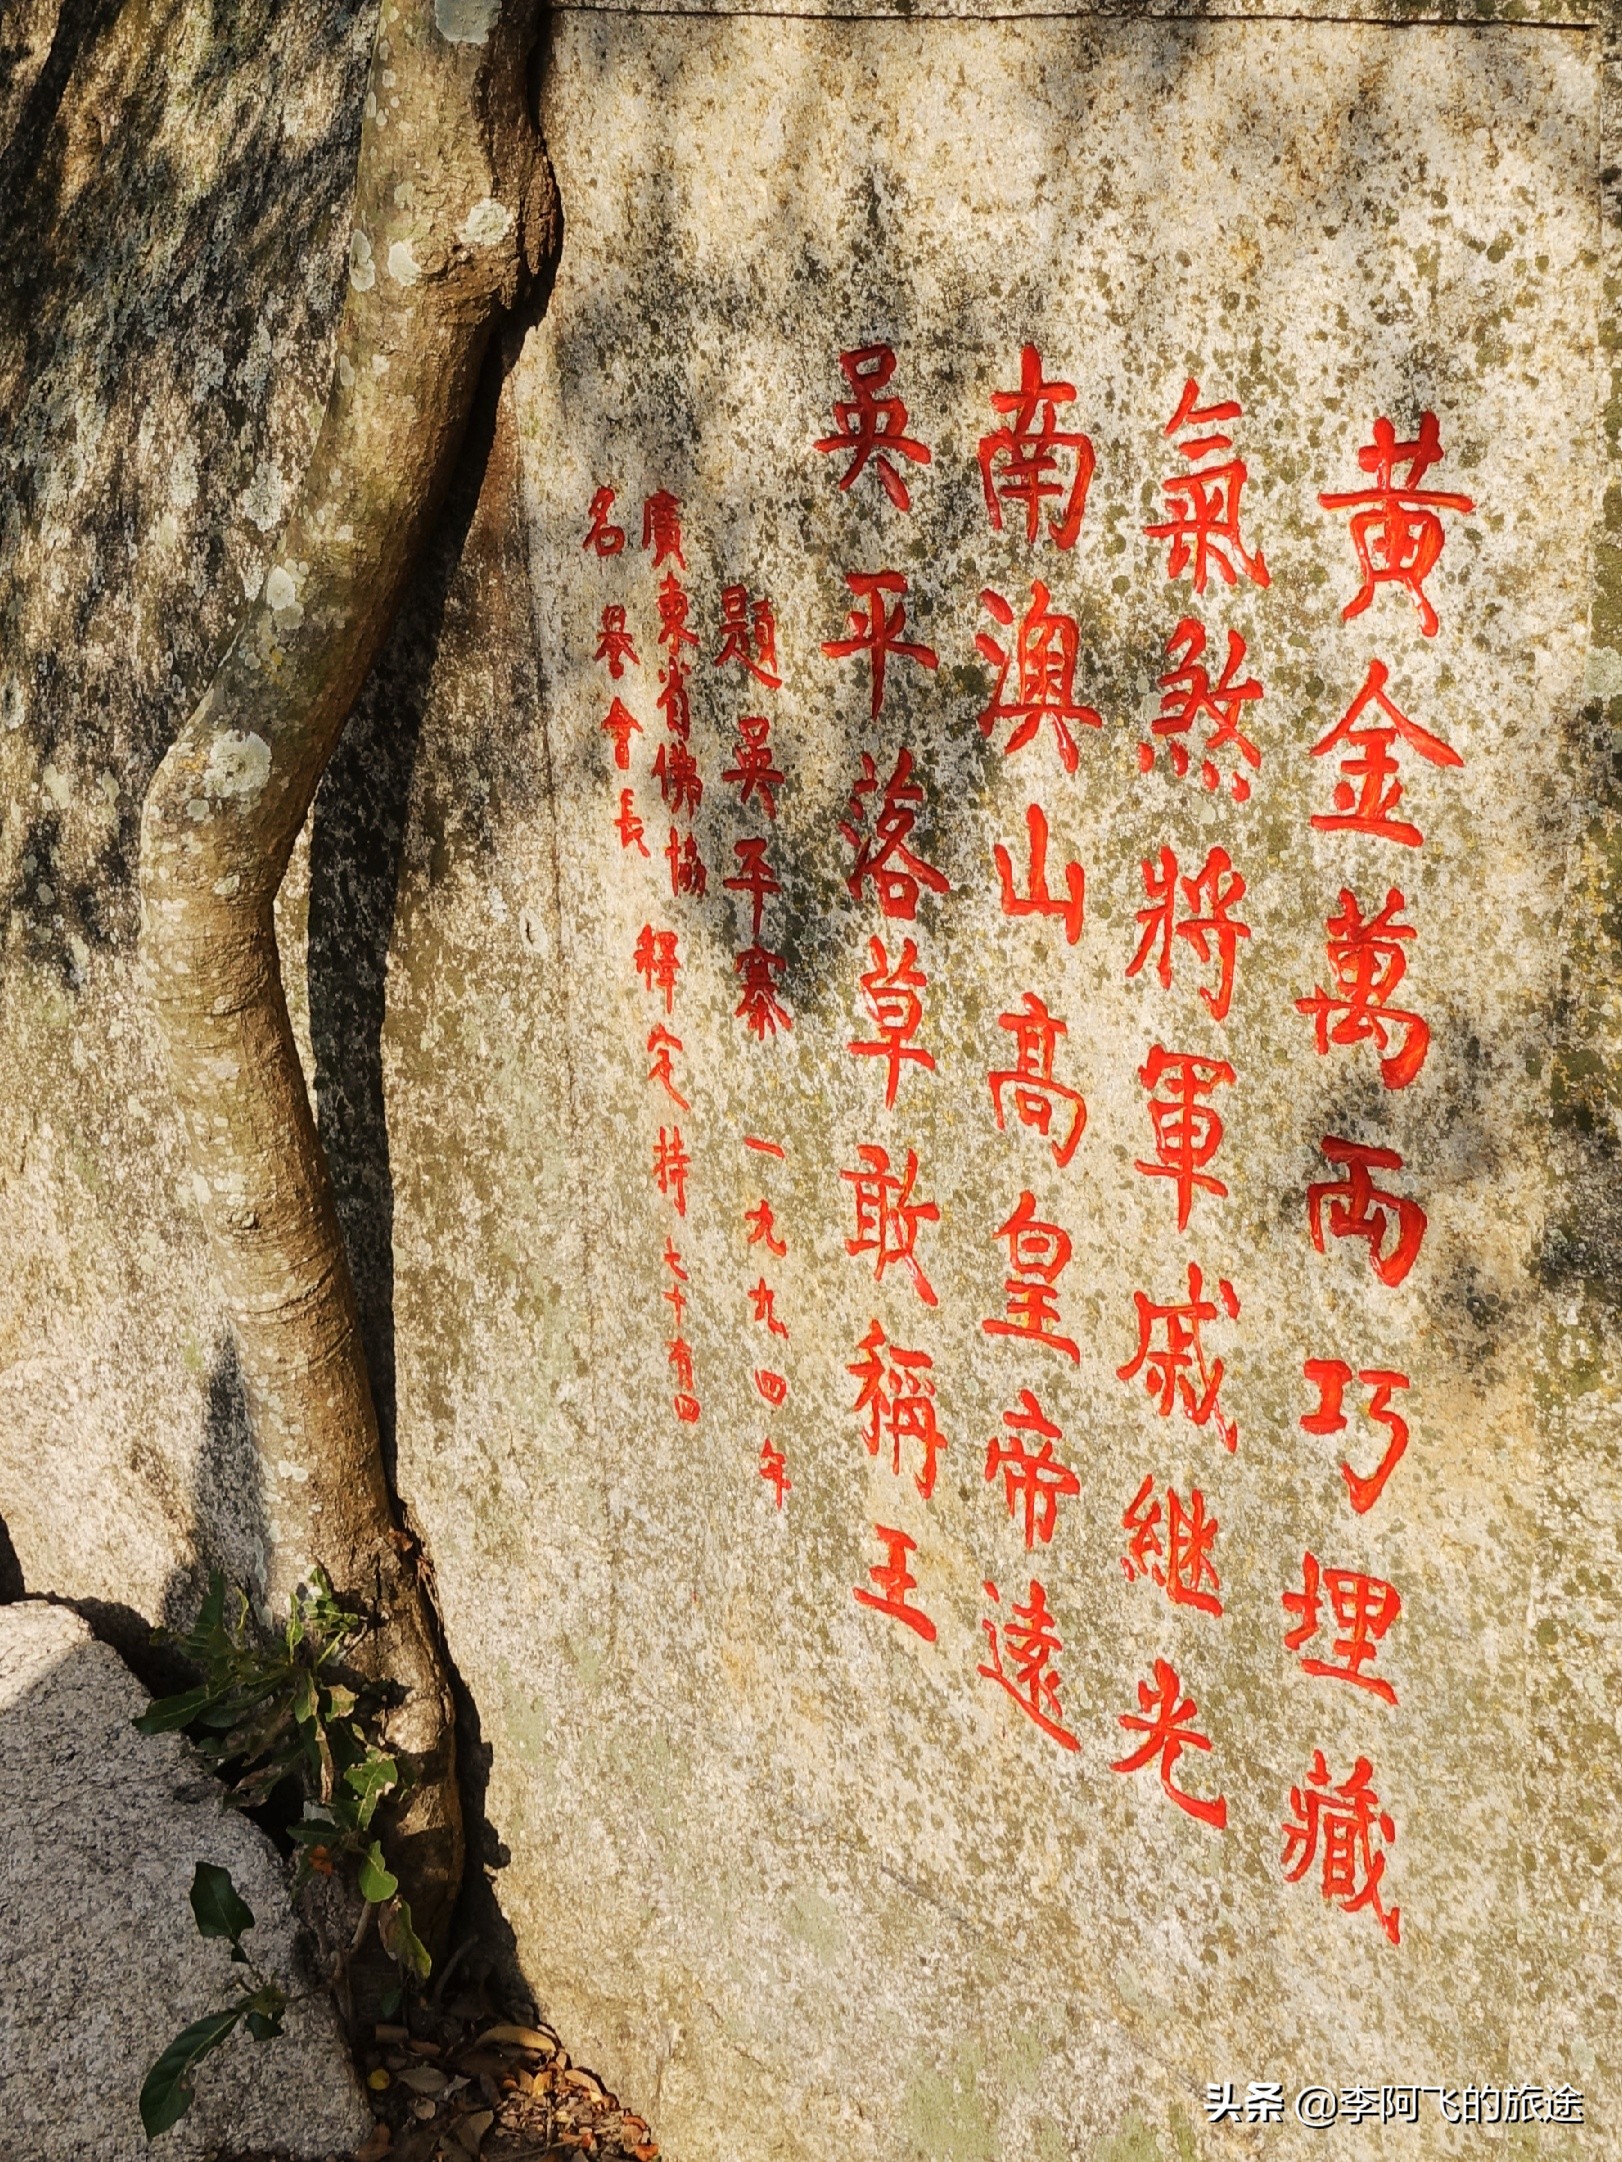 黄金萬両巧埋藏
氣煞將軍戚継光
南澳山高皇帝遠
吳平落草敢稱王
題吳平寨 一九九四年
廣東省佛協 釋定持 七十有四
名譽會長
头条 @李阿飞的旅途